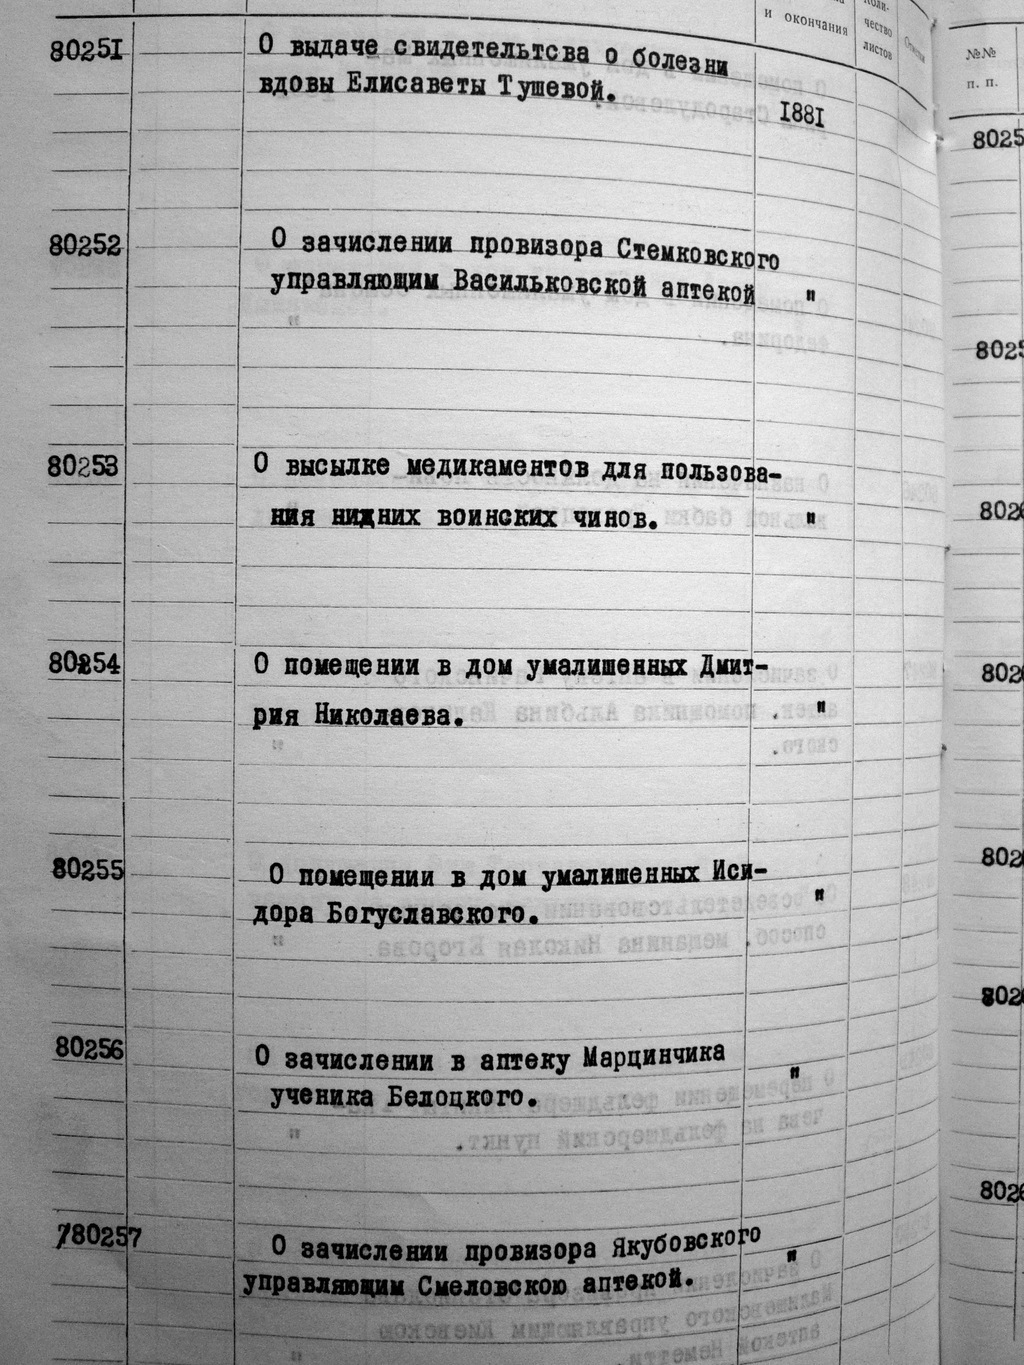 и окончания
чество
листов
№№
п. п.
80251
О выдаче свидетельтсва о болезни
вдовы Елисаветы Тушевой.
1881
80252
О зачислении провизора Стемковского
управляющим Васильковской аптекой "
80253
О высылке медикаментов для пользова-
ния нижних воинских чинов. "
80254
О помещении в дом умалишенных Дмит-
рия Николаева. "
80255
О помещении в дом умалишенных Иси-
дора Богуславского. "
80256
О зачислении в аптеку Марцинчика
ученика Белоцкого. "
780257
О зачислении провизора Якубовского
управляющим Смеловскою аптекой. "